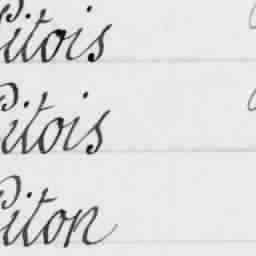 Pitois
Pitois
Piton